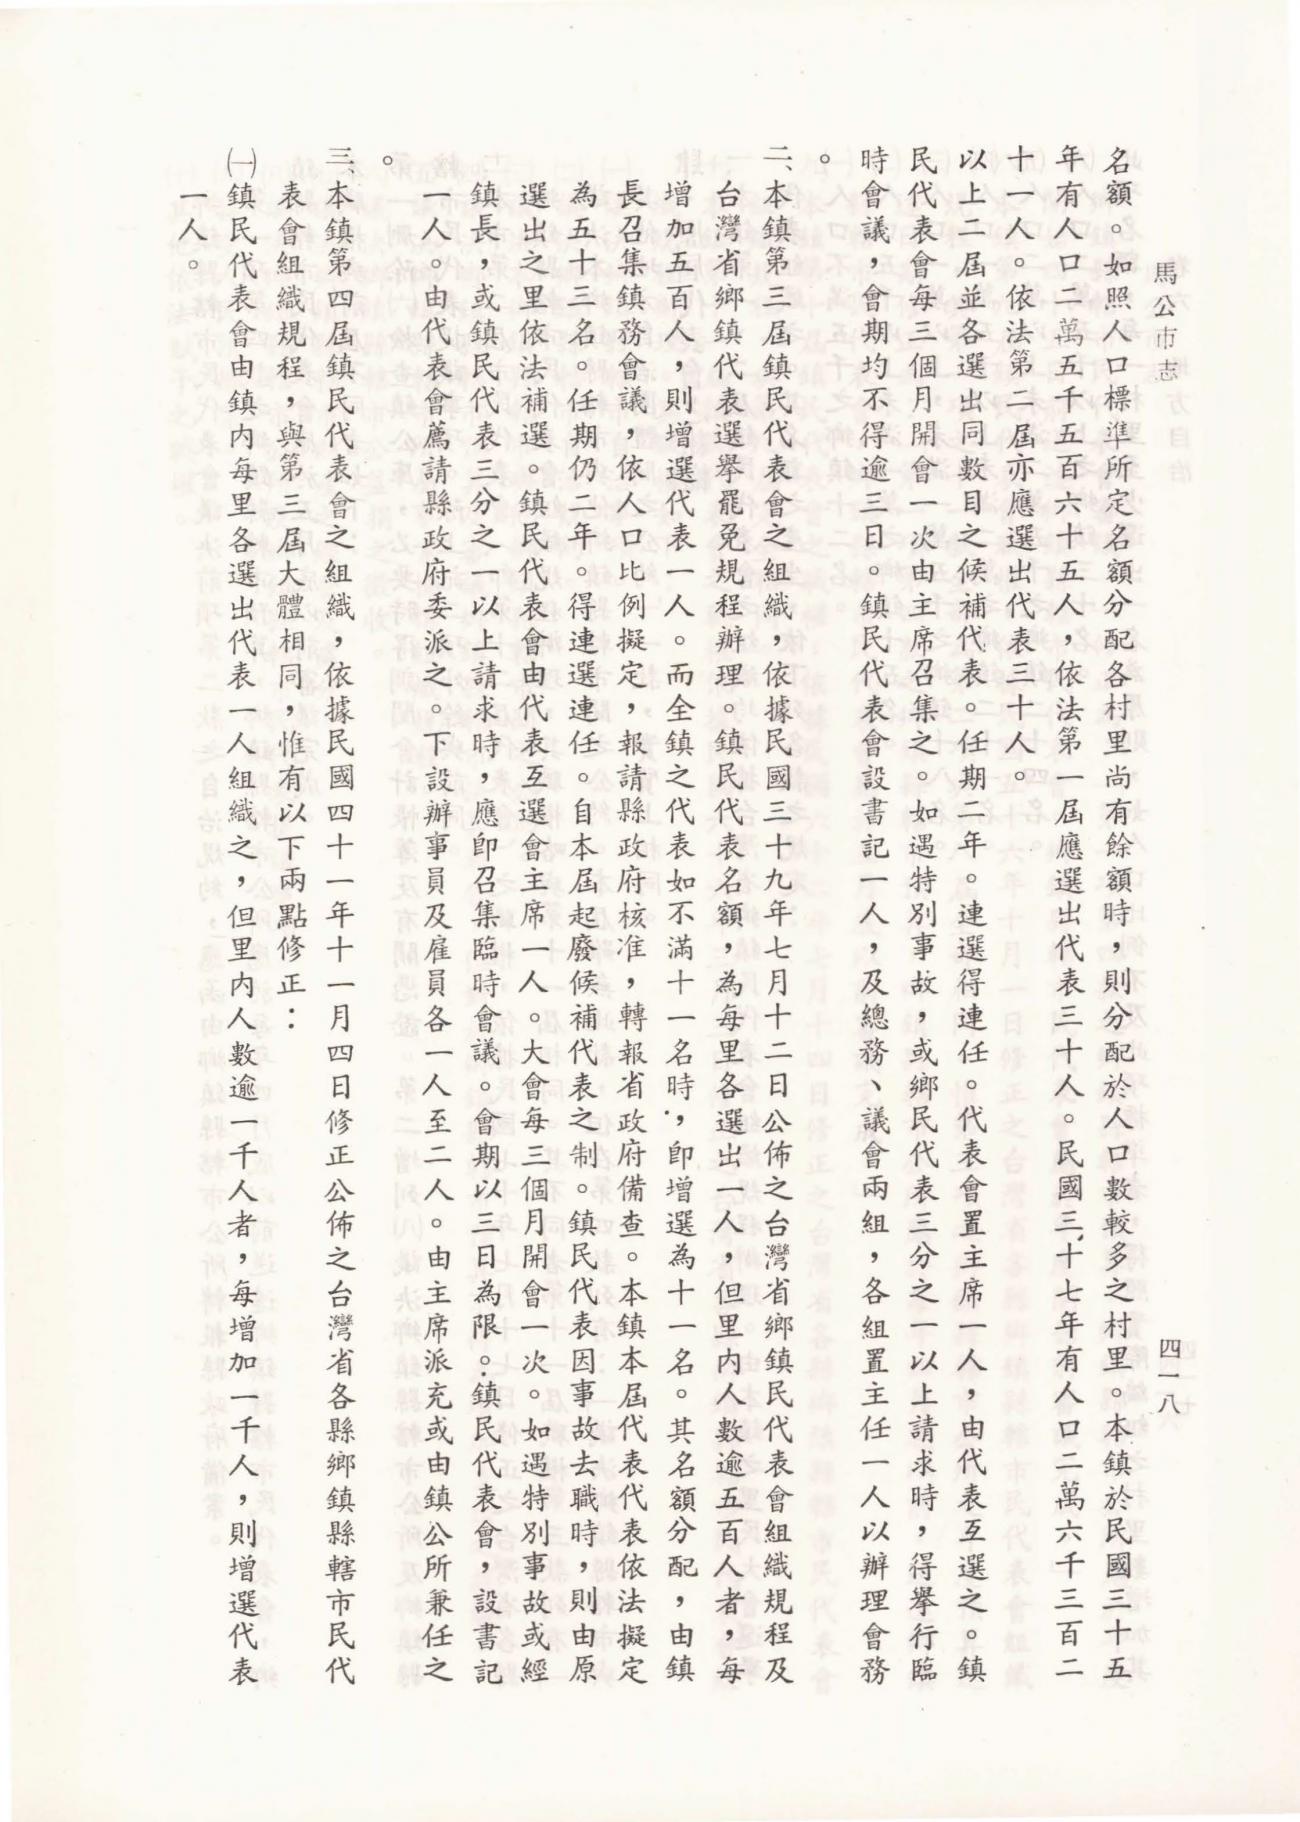 馬公市志
四一八
名額。如照人口標準所定名額分配各村里尚有餘額時，則分配於人口數較多之村里。本鎮於民國三十五
年有人口二萬五千五百六十五人，依法第一屆應選出代表三十人。民國三十七年有人口二萬六千三百二
十一人。依法第二屆亦應選出代表三十人。
以上二屆並各選出同數目之候補代表。任期二年。連選得連任。代表會置主席一人，由代表互選之。鎮
民代表會每三個月開會一次由主席召集之。如遇特別事故，或鄉民代表三分之一以上請求時，得舉行臨
時會議，會期均不得逾三日。鎮民代表會設書記一人，及總務、議會兩組，各組置主任一人以辦理會務
。
二、本鎮第三屆鎮民代表會之組織，依據民國三十九年七月十二日公佈之台灣省鄉鎮民代表會組織規程及
台灣省鄉鎮代表選舉罷免規程辦理。鎮民代表名額，為每里各選出一人，但里內人數逾五百人者，每
增加五百人，則增選代表一人。而全鎮之代表如不滿十一名時，即增選為十一名。其名額分配，由鎮
長召集鎮務會議，依人口比例擬定，報請縣政府核准，轉報省政府備查。本鎮本屆代表代表依法擬定
為五十三名。任期仍二年。得連選連任。自本屆起廢候補代表之制。鎮民代表因事故去職時，則由原
選出之里依法補選。鎮民代表會由代表互選會主席一人。大會每三個月開會一次。如遇特別事故或經
鎮長，或鎮民代表三分之一以上請求時，應即召集臨時會議。會期以三日為限。鎮民代表會，設書記
一人。由代表會薦請縣政府委派之。下設辦事員及雇員各一人至二人。由主席派充或由鎮公所兼任之
。
三、本鎮第四屆鎮民代表會之組織，依據民國四十一年十一月四日修正公佈之台灣省各縣鄉鎮縣轄市民代
表會組織規程，與第三屆大體相同，惟有以下兩點修正：
㈠鎮民代表會由鎮內每里各選出代表一人組織之，但里內人數逾一千人者，每增加一千人，則增選代表
一人。